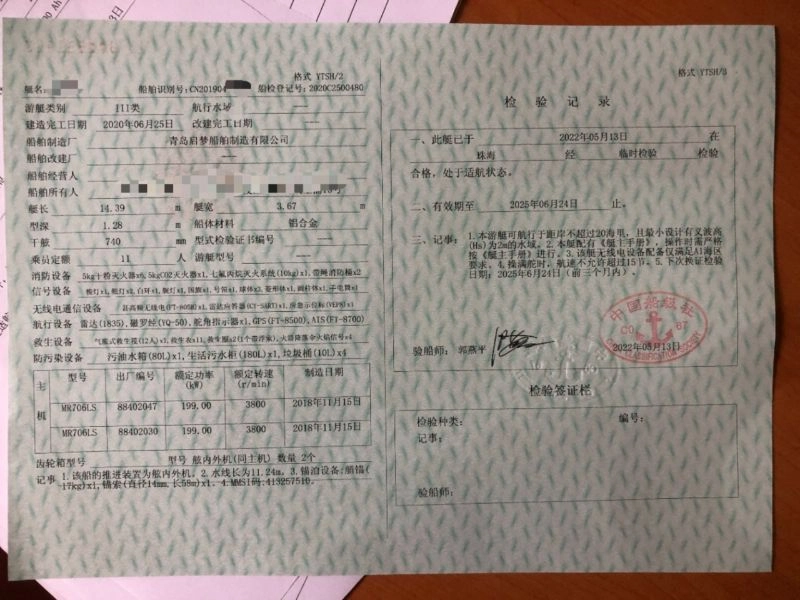 格式 YTSH/2
艇名:
船舶识别号:CN201904
船检登记号: 2020C2500480
游艇类别 III类 航行水域 ——
建造完工日期 2020年06月25日 改建完工日期 ——
船舶制造厂 青岛启梦船舶制造有限公司
船舶改建厂 ——
船舶经营人
船舶所有人
艇长 14.39 m 艇宽 3.67 m
型深 1.28 m 船体材料 铝合金
干舷 740 mm 型式检验证书编号 ——
乘员定额 11 人 游艇型号 ——
消防设备 5kg干粉灭火器x6,5kgCO2灭火器x1,七氟丙烷灭火系统(10kg)x1,带绳消防桶x2
信号设备
无线电通信设备 甚高频无线电(FT-805B)x1,雷达应答器(CY-SART)x1,应急示位标(VEP8)x1
航行设备 雷达(1835),磁罗经(YQ-50),舵角指示器x1,GPS(FT-8500),AIS(FT-8700)
救生设备 气胀式救生筏(12人)x1,救生衣x11,救生圈x2(1个带浮索),火箭降落伞火焰信号x4
防污染设备 污油水箱(80L)x1,生活污水柜(180L)x1,垃圾桶(10L)x4
主机
型号 出厂编号 额定功率(kW) 额定转速(r/min) 制造日期
MR706LS 88402047 199.00 3800 2018年11月15日
MR706LS 88402030 199.00 3800 2018年11月15日
齿轮箱型号 型号 舷内外机(同主机) 数量 2个
记事 1.该船的推进装置为舷内外机。2.水线长为11.24m。3.锚泊设备:艏锚(
17kg)x1,锚索(直径14mm,长58m)x1。4.MMSI码:413257510。
格式 YTSH/3
检 验 记 录
一、此艇已于 2022年05月13日 在
珠海 经 临时检验 检验
合格,处于适航状态。
二、有效期至 2025年06月24日 止。
三、记事: 1.本游艇可航行于距岸不超过20海里,且最小设计有义波高
(Hs)为2m的水域。2.本艇配有《艇主手册》,操作时需严格
按《艇主手册》进行。3.该艇无线电设备配备仅满足A1海区
要求。4.操满舵时,航速不允许超过15节。5.下次换证检验
日期:2025年06月24日(前三个月内)。
中国船级社
CO 67
CHINA CLASSIFICATION SOCIETY
验船师: 郭燕平
2022年05月13日
检验签证栏
检验种类: 编号:
记事:
验船师: